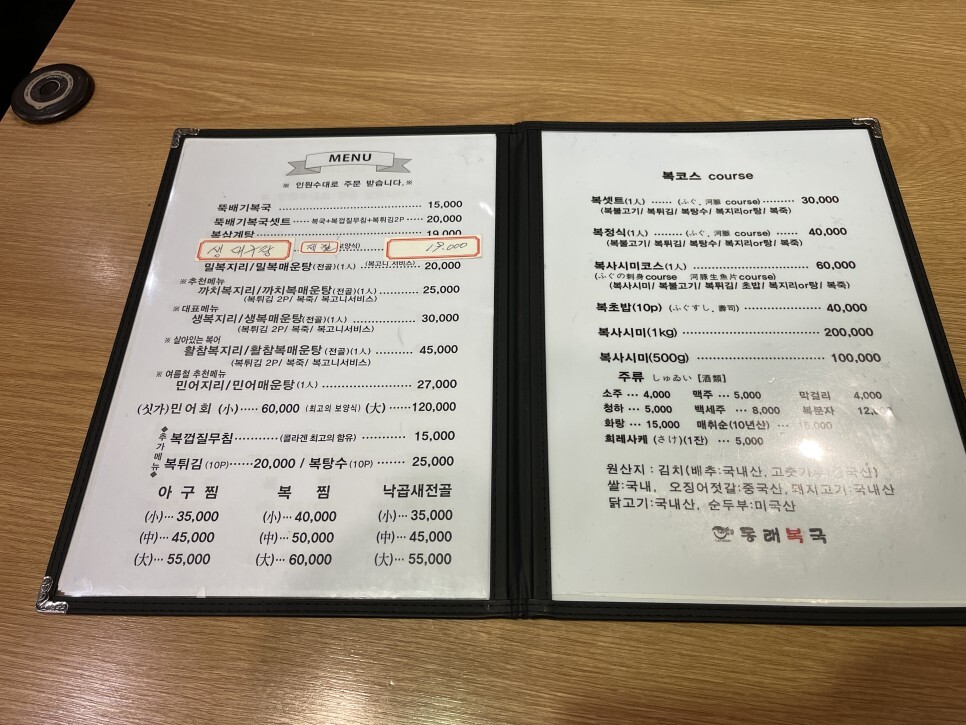 MENU
※ 인원수대로 주문 받습니다.※
뚝배기복국 15,000
뚝배기복국셋트 ····· 복국+복껍질무침+복튀김2P ····· 20,000
복삼계탕 19,000
생 대구탕 제철 보양식) 19.000
밀복지리/밀복매운탕(전골)(1人) (복고니 서비스) 20,000
※추천메뉴
까치복지리/까치복매운탕(전골)(1人) 25,000
(복튀김 2P/ 복죽/ 복고니서비스)
※ 대표메뉴
생복지리/생복매운탕(전골)(1人) 30,000
(복튀김 2P/ 복죽/ 복고니서비스)
※ 살아있는 복어
활참복지리/활참복매운탕 (전골)(1人) 45,000
(복튀김 2P/ 복죽/ 복고니서비스)
※ 여름철 추천메뉴
민어지리/민어매운탕(1人) 27,000
(싯가)민어회 (小)··· 60,000 (최고의 보양식) (大) ·····120,000
◆추가메뉴◆
복껍질무침 (콜라겐 최고의 함유) 15,000
복튀김(10P)······20,000 / 복탕수(10P) ······· 25,000
아 구 찜 복 찜 낙곱새전골
(小)··· 35,000 (小)··· 40,000 (小)··· 35,000
(中)··· 45,000 (中)··· 50,000 (中)··· 45,000
(大)··· 55,000 (大)··· 60,000 (大)··· 55,000
복코스 course
복셋트(1人) ····· (ふぐ, 河豚 course) ····· 30,000
(복불고기/ 복튀김/ 복탕수/ 복지리or탕/ 복죽)
복정식(1人) ······· (ふぐ, 河豚 course) ······· 40,000
(복불고기/ 복튀김/ 복탕수/ 복지리or탕/ 복죽)
복사시미코스(1人) 60,000
(ふぐの刺身course 河豚生魚片course)
(복사시미/ 복불고기/ 복튀김/ 초밥/ 복지리or탕/ 복죽)
복초밥(10p) (ふぐすし, 壽司) 40,000
복사시미(1kg) 200,000
복사시미(500g) 100,000
주류 しゅゐい [酒類]
소주 ··· 4,000 맥주 ··· 5,000 막걸리 4,000
청하 ··· 5,000 백세주 ··· 8,000 복분자
화랑 ··· 15,000 매취순(10년산) ··· 15,000
희레사케 (さけ)(1잔) ··· 5,000
원산지 : 김치(배추:국내산, 고춧가루:중국산)
쌀:국내, 오징어젓갈:중국산, 돼지고기:국내산
닭고기:국내산, 순두부:미국산
동래복국